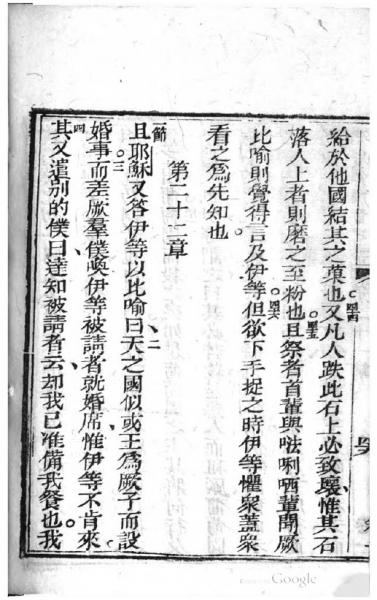 給於他國結其之菓也。四四又凡人跌此石上必致壞、惟其石
落人上者則磨之至粉也。四五且祭者首輩與呿唎哂輩聞厥
比喻則覺得言及伊等。四六但欲下手捉之時伊等懼衆蓋衆
看之爲先知也。
第二十二章
一節且耶穌又答伊等以比喻曰、二天之國似或王爲厥子而設
婚事。三而差厥羣僕喚伊等被請者就婚席、惟伊等不肯來。
四其又遣別的僕曰、達知被請者云、却我已准備我餐也。我
Google